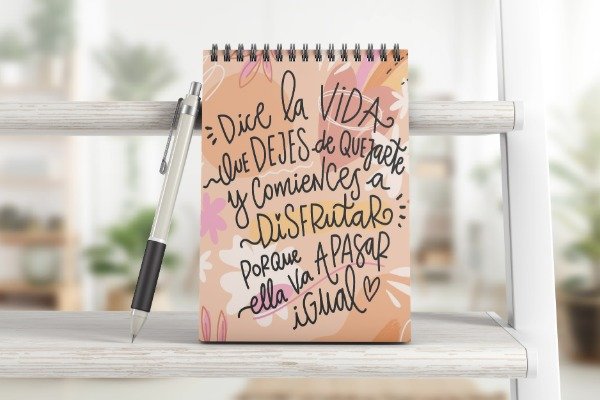 Dice la ViDA
que DEJES de QUEJARTE
y COMIENCES a
DiSFRUTAR
PORQUE
ella va A PASAR
iGUAL